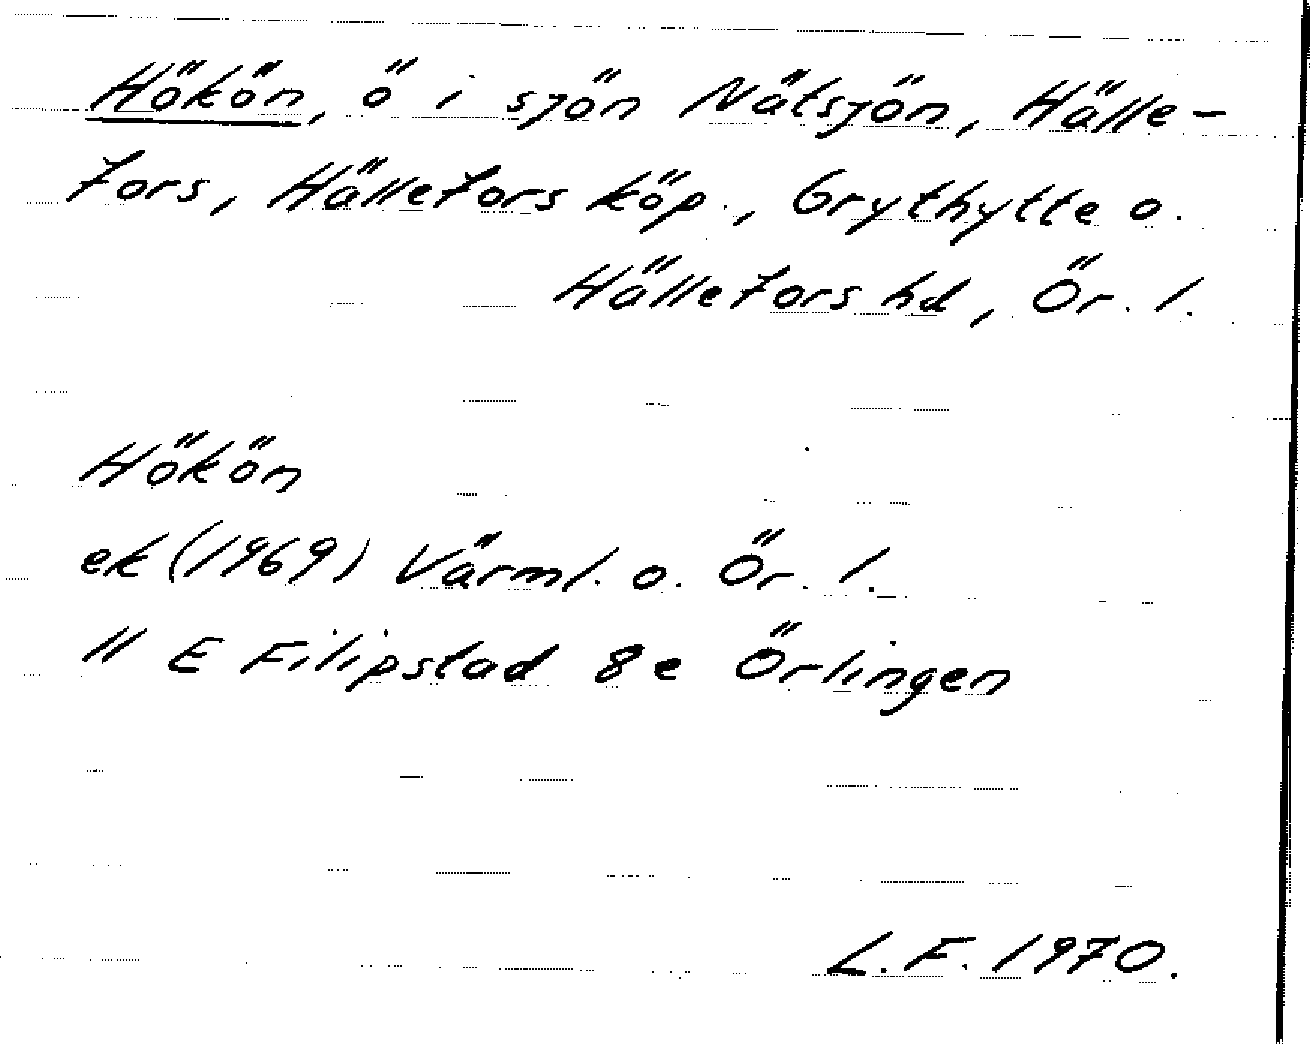 Hökön, ö i sjön Nätsjön, Hälle-
fors, Hällefors köp., Grythytte o.
Hällefors hd, Ör. l.
Hökön
ek (1969) Värml. o. Ör. l.
" E Filipstad 8e Örlingen
L.F. 1970.